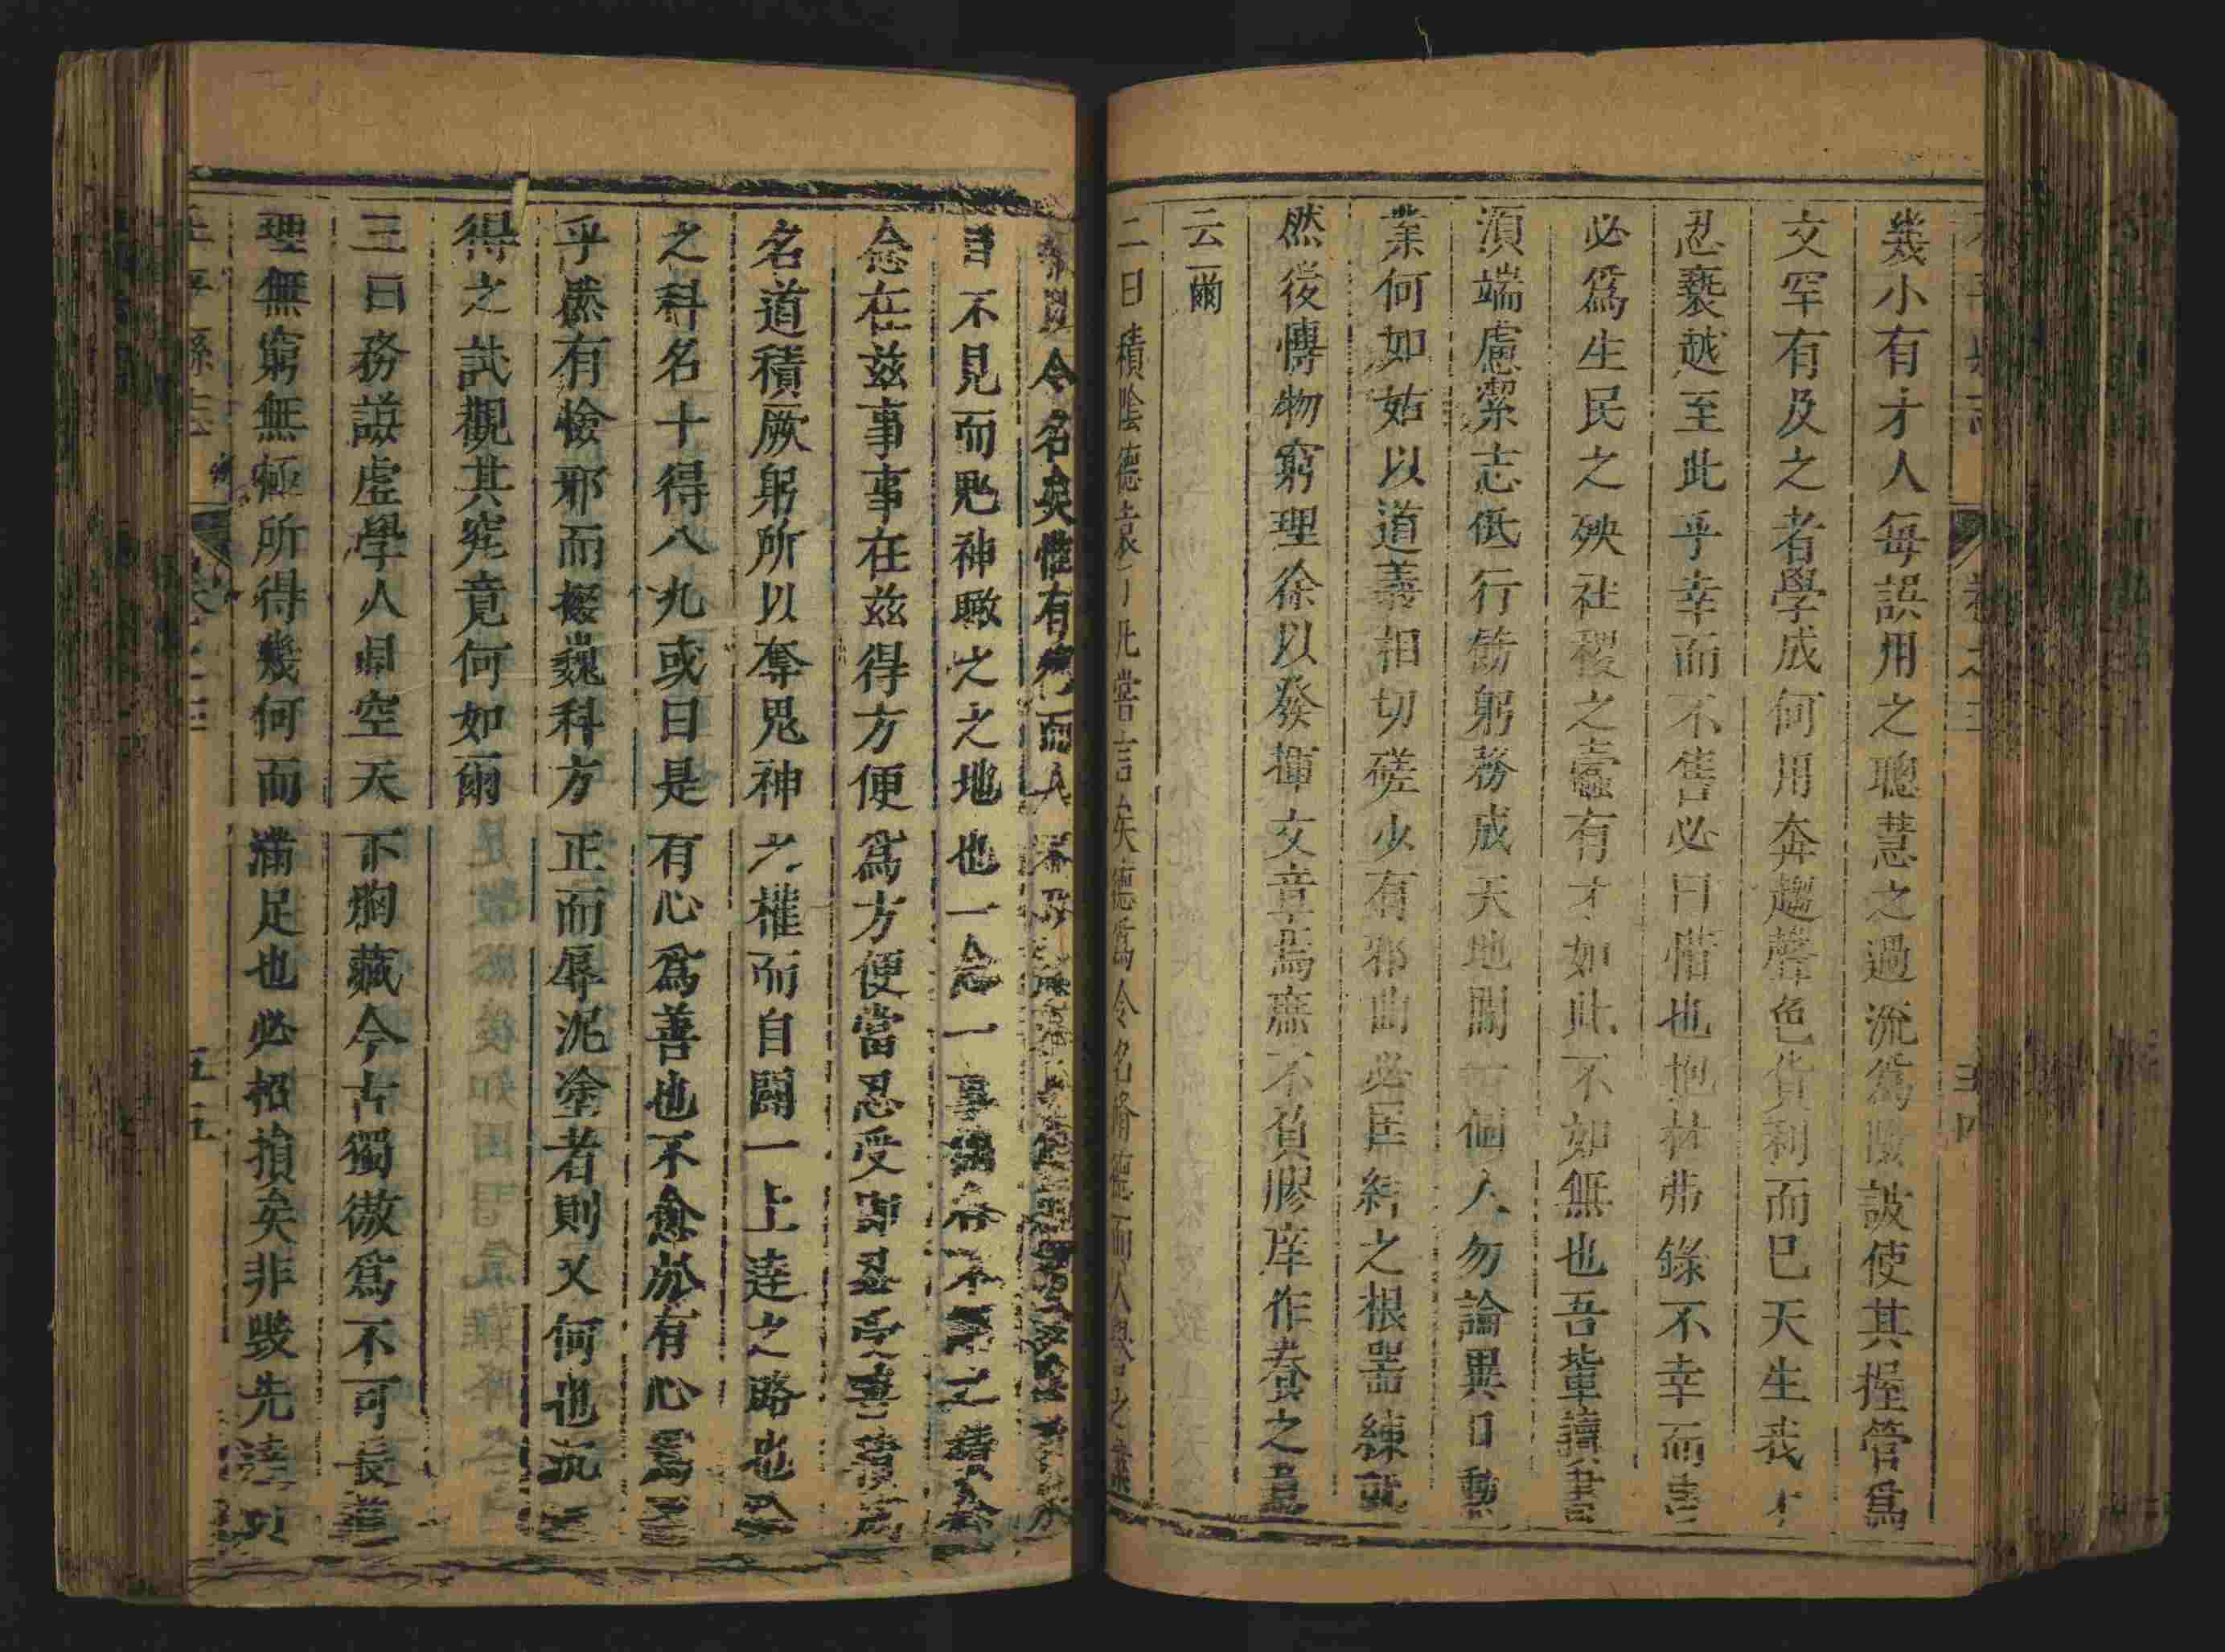 幾小有才人每誤用之聰慧之過流爲險詖使其握管爲
文罕有及之者學成何用奔趨聲色貨利而已天生我才
忍褻越至此乎幸而不售必曰惜也抱材弗錄不幸而售
必爲生民之殃社稷之蠹有才如此不如無也吾輩讀書
須端慮潔志低行飭躬務成天地間一個人勿論異日勳
業何如姑以道義相切磋少有邪曲必匡結之根器練就
然後博物窮理徐以發揮文章焉庶不負膠庠作養之意
云爾
二曰積陰德袁了凡嘗言矣德爲令名脩德而人譽之
令名矣惟有行而人
目不見而鬼神瞰之之地也一念一事之積
念在茲事事在茲得方便爲方便當忍受即忍受
名道積厥躬所以奪鬼神之權而自闢一上達之路也
之科名十得八九或曰是有心爲善也不愈於有心爲
乎然有憸邪而掇巍科方正而辱泥塗者則又何也
得之試觀其究竟何如爾
三曰務謙虛學人鼻空天下胸藏今古獨傲爲不可長
理無窮無極所得幾何而滿足也必招損矣非毀先達
卷之三
五五